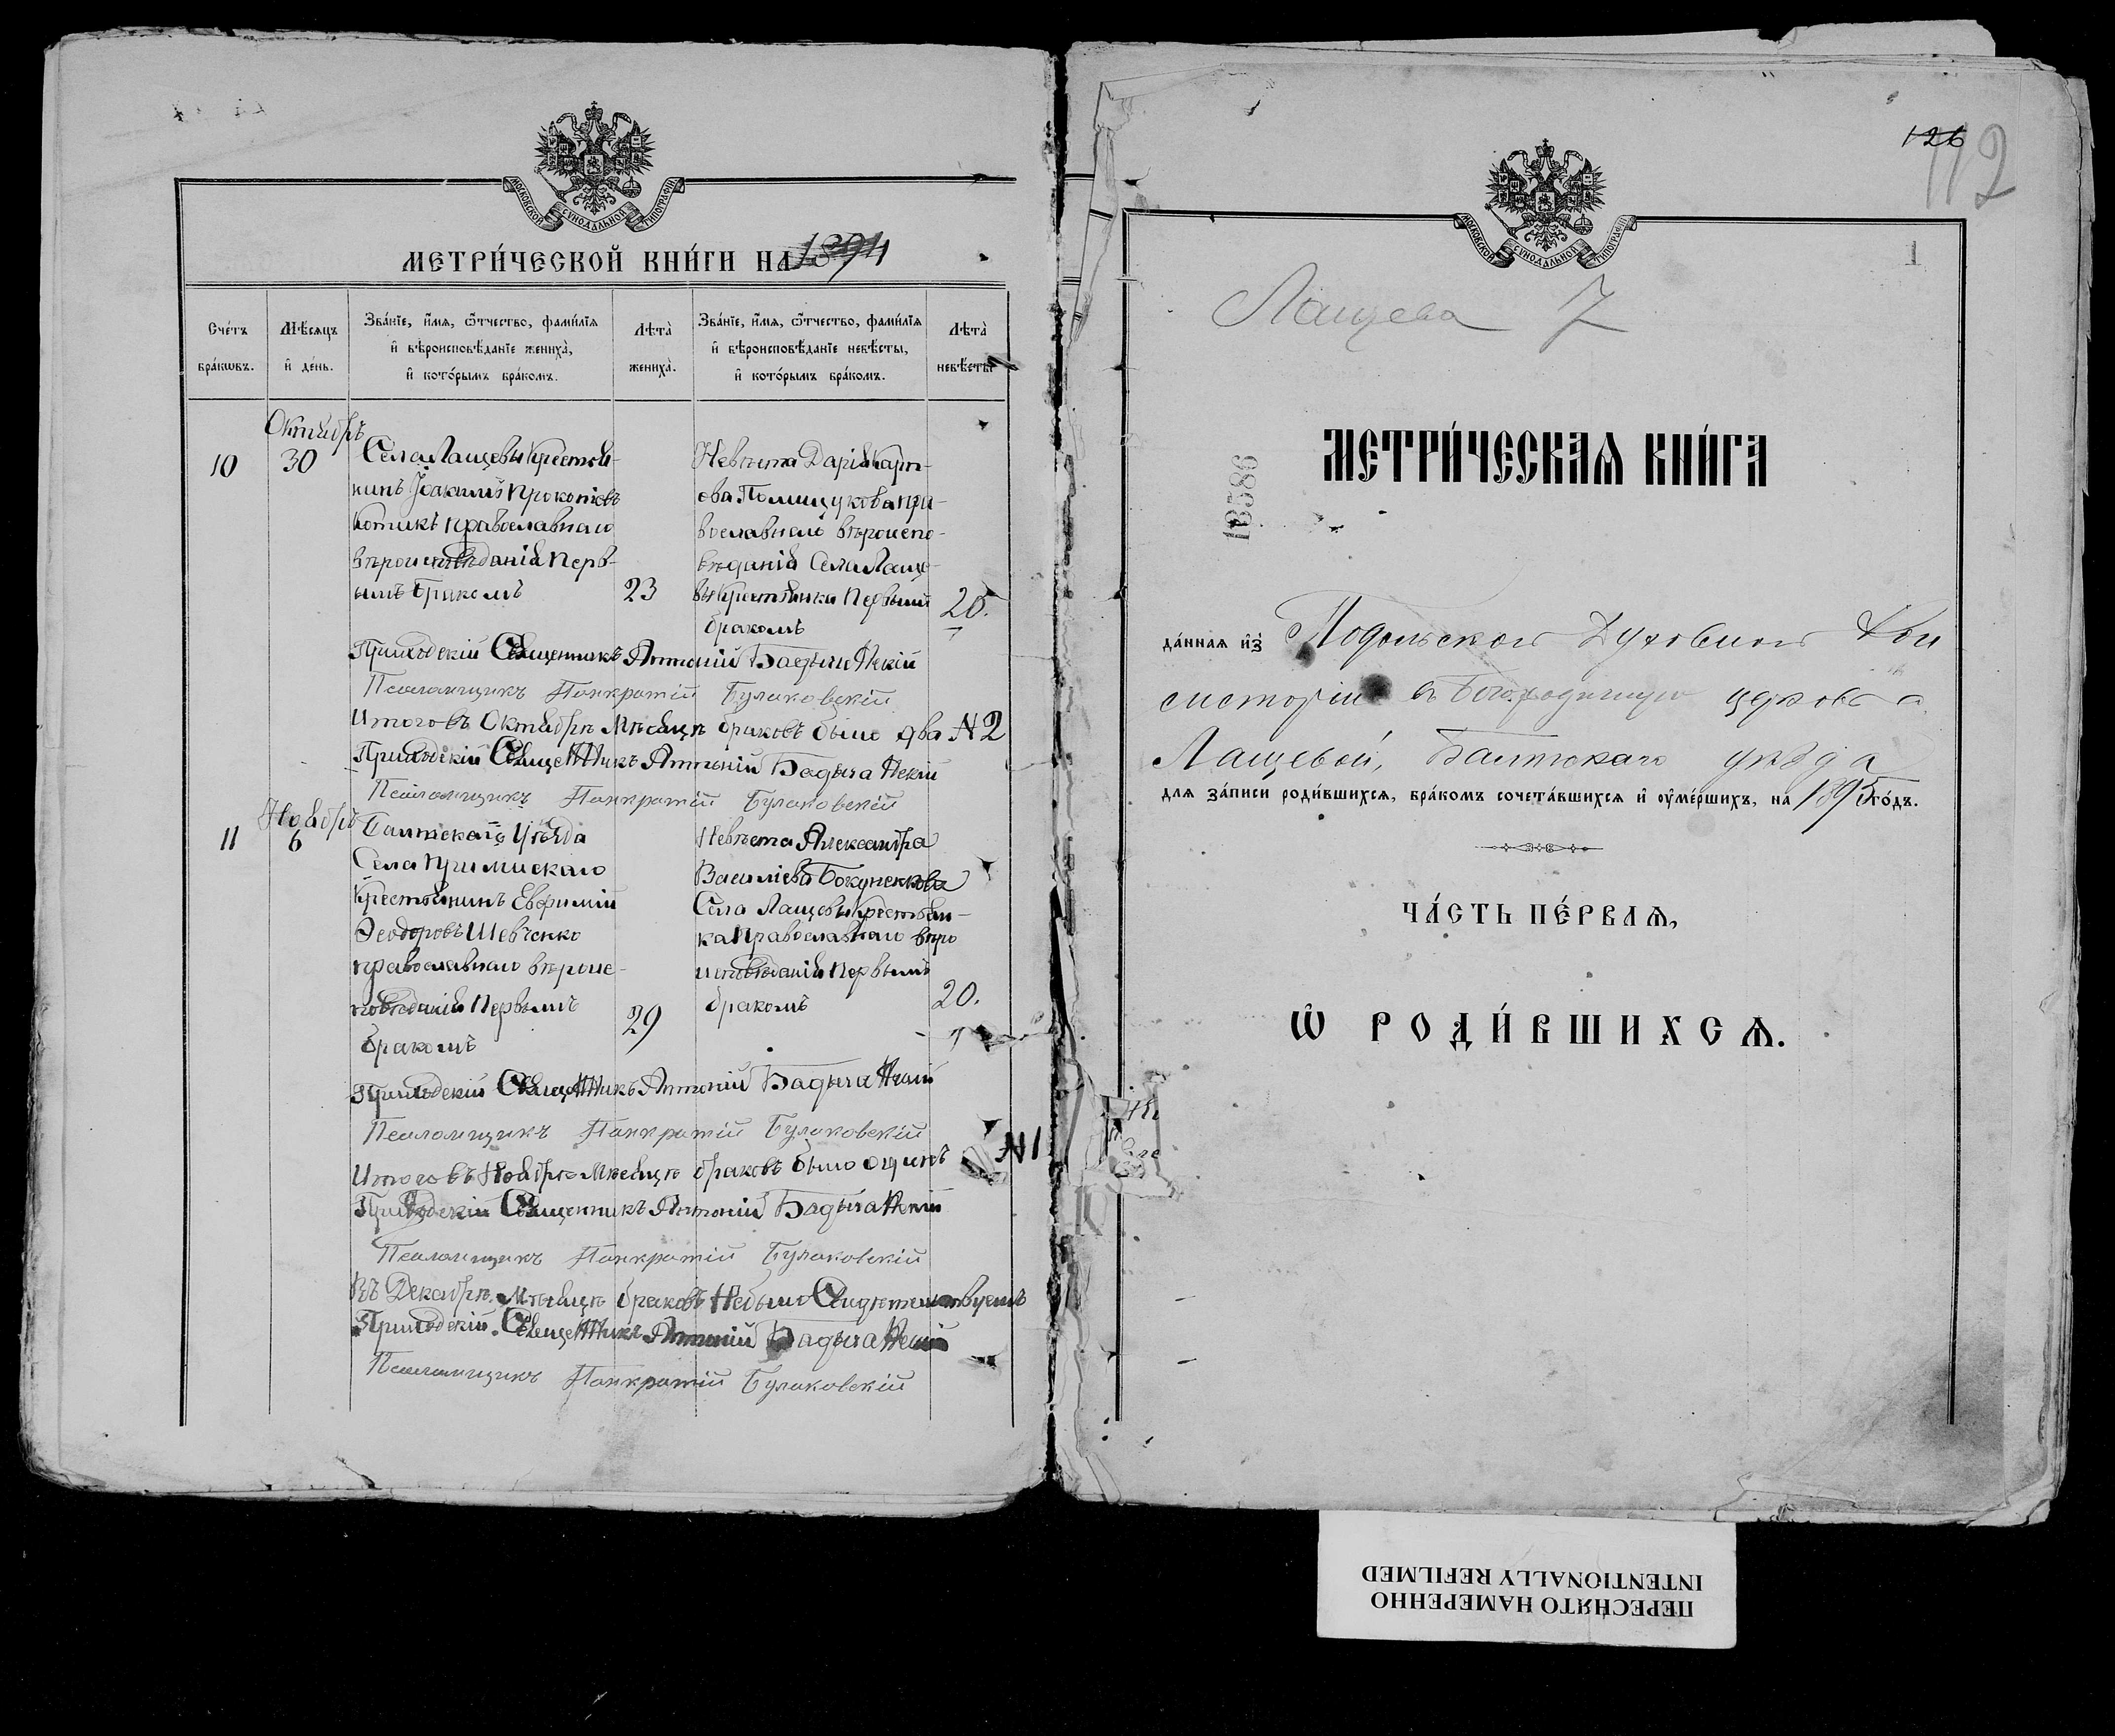 МОСКОВСКОЙ СѴНОДАЛЬНОЙ ТИПОГРАФІИ
МЕТРИ́ЧЕСКОЙ КНИ́ГИ НА 1894
Сче́тъ бра́кѡвъ.
Мѣ́сяцъ и҆ де́нь.
Зва́нїе, и҆́мѧ, ѻ҆́тчество, фами́лїѧ
и҆ вѣроисповѣ́данїе жениха̀,
и҆ кото́рымъ бра́комъ.
Лѣта̀ жениха̀.
Зва́нїе, и҆́мѧ, ѻ҆́тчество, фами́лїѧ
и҆ вѣроисповѣ́данїе невѣ́сты,
и҆ кото́рымъ бра́комъ.
Лѣта̀ невѣ́сты
Октябрь
10
30
Села Лащевы Крестья-
нинъ Іоакимъ Прокопіевъ
Котикъ православнаго
вѣроисповѣданія Перв-
ымъ бракомъ
23
Невѣста Дарія Карп-
ова Полищукова пра-
вославнаго вѣроиспо-
вѣданія Села Лаще-
вы Крестьянка Первымъ
бракомъ
20.
Приходскій Священникъ Антоній
Псаломщикъ Панкратій Булаковскій
Итого въ Октябрѣ Мѣсяцѣ браковъ было два № 2
Приходскій Священникъ Антоній
Псаломщикъ Панкратій Булаковскій
Ноябрь
11
6
Балтскаго Уѣзда
Села
Крестьянинъ Евфимій
Ѳеодоровъ Шевченко
православнаго вѣроис-
повѣданія Первымъ
бракомъ
29
Невѣста Александра
Василіева
Села Лащевы Крестьян-
ка Православнаго вѣро
исповѣданія Первымъ
бракомъ
20.
Приходскій Священникъ Антоній
Псаломщикъ Панкратій Булаковскій
Итого въ Ноябрѣ Мѣсяцѣ браковъ было одинъ № 1
Приходскій Священникъ Антоній
Псаломщикъ Панкратій Булаковскій
Въ Декабрѣ Мѣсяцѣ браковъ Небыло Свидѣтельствуемъ
Приходскій Священникъ Антоній
Псаломщикъ Панкратій Булаковскій
126
112
МОСКОВСКОЙ СѴНОДАЛЬНОЙ ТИПОГРАФІИ
1
Лащева 7
МЕТРИ́ЧЕСКАѦ КНИ́ГА
13586
да́ннаѧ и҆з̾ Подольской Духовной Кон
систоріи въ Богородичную церковь с.
Лащевой, Балтскаго уѣзда
для за́писи роди́вшихсѧ, бра́комъ сочета́вшихсѧ и҆ ᲂу҆ме́ршихъ, на 1895 го́дъ.
ЧА́СТЬ ПЕ́РВАѦ,
Ѡ҆ РОДИ́ВШИХСѦ.
ПЕРЕСНЯТО НАМЕРЕННО
INTENTIONALLY REFILMED